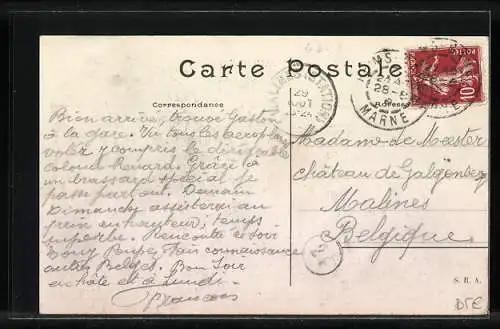 Carte Postale
Correspondance
Adresse
Bien arrivé, trouvé Gaston
à la gare. Vu tous les aeroplans
voler y compris le dirigeable
Colonel Renard. Grâce à
un brassard spécial je
passe partout. Demain
Dimanche assisterai au
prix en hauteur; temps
superbe. Rencontré ce soir
fait connaissance
autres Belges. Bon soir
en hâte et à Lundi.
François
Madame de Meester
château de Galgenberg
Malines
Belgique
MARNE
29
AOUT
10
S. R. A.